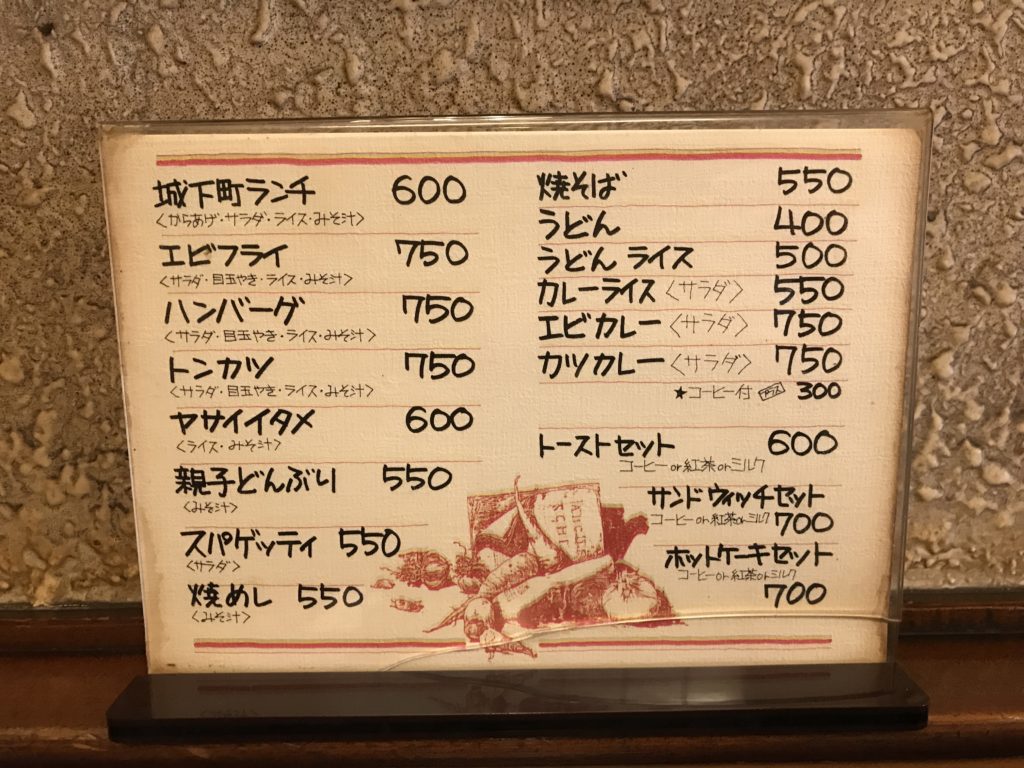 城下町ランチ 600
〈からあげ・サラダ・ライス・みそ汁〉
エビフライ 750
〈サラダ・目玉やき・ライス・みそ汁〉
ハンバーグ 750
〈サラダ・目玉やき・ライス・みそ汁〉
トンカツ 750
〈サラダ・目玉やき・ライス・みそ汁〉
ヤサイイタメ 600
〈ライス・みそ汁〉
親子どんぶり 550
〈みそ汁〉
スパゲッティ 550
〈サラダ〉
焼めし 550
〈みそ汁〉
焼そば 550
うどん 400
うどん ライス 500
カレーライス〈サラダ〉 550
エビカレー〈サラダ〉 750
カツカレー〈サラダ〉 750
★コーヒー付 プラス 300
トーストセット 600
コーヒーor紅茶orミルク
サンドウィッチセット
コーヒーor紅茶orミルク 700
ホットケーキセット
コーヒーor紅茶orミルク
700